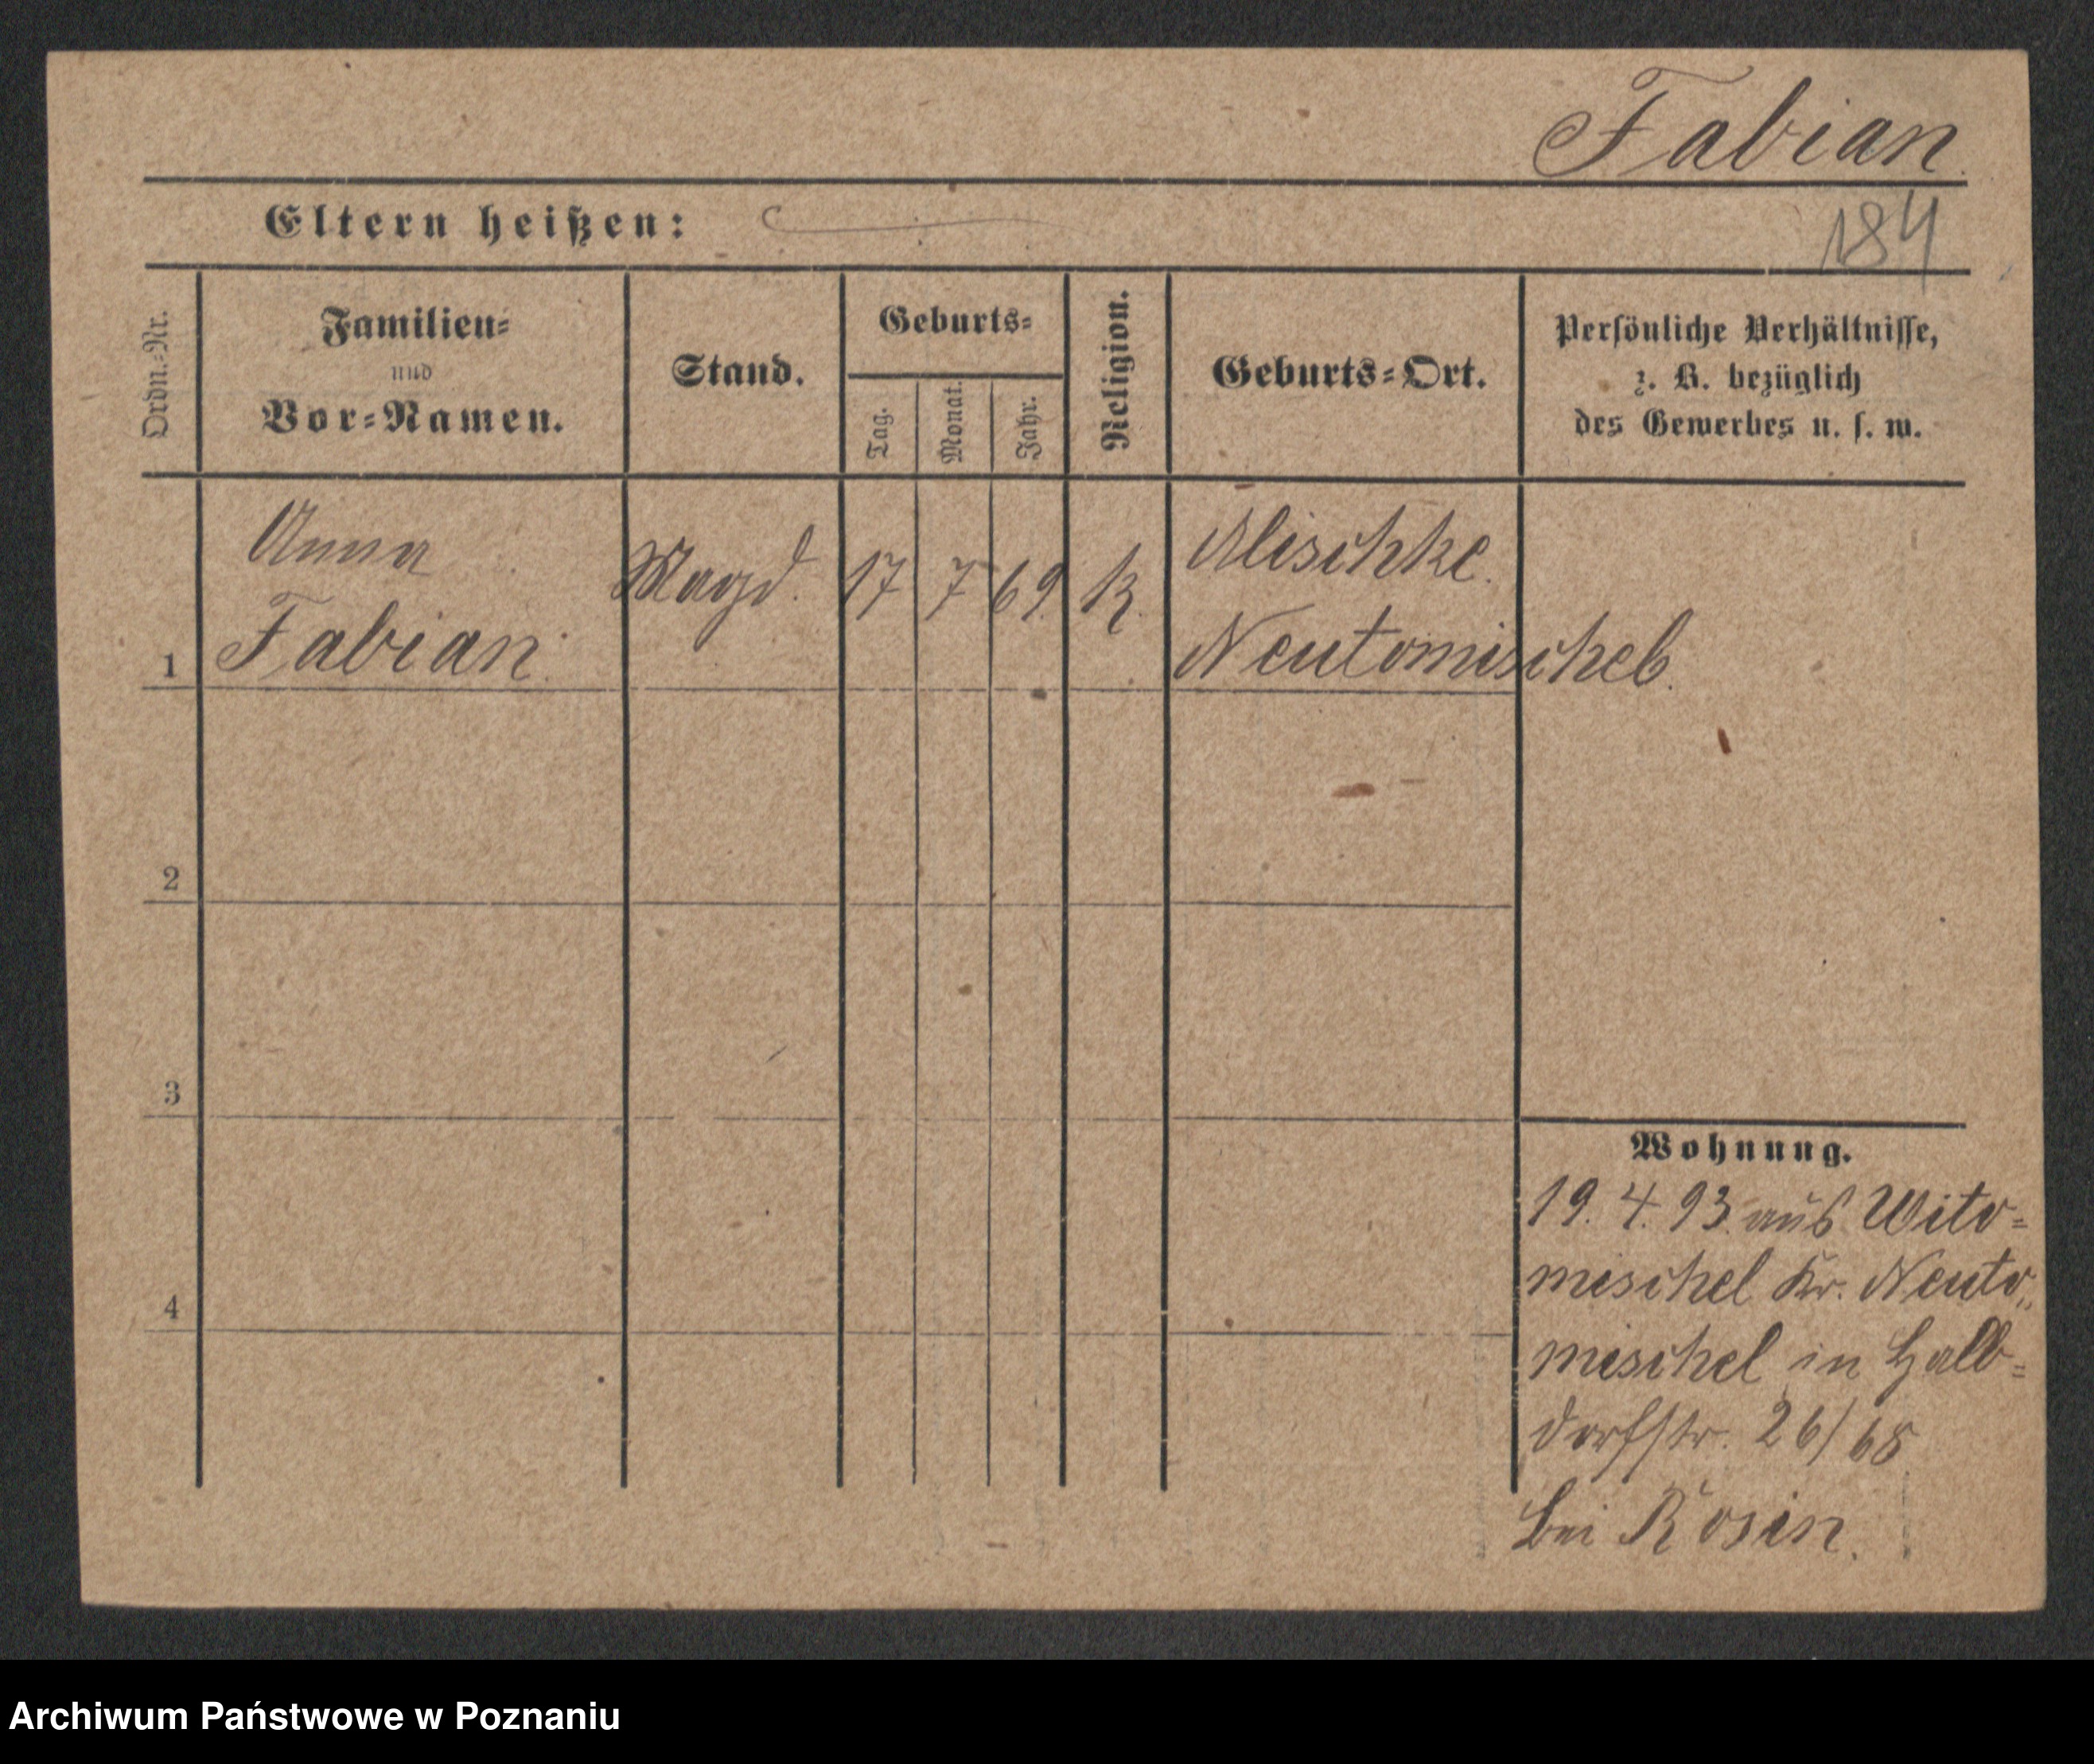 Fabian.
Eltern heißen:
184
Ordn.-Nr.
Familien-
und
Vor-Namen.
Stand.
Geburts-
Tag.
Monat.
Jahr.
Religion.
Geburts-Ort.
Persönliche Verhältnisse,
z. B. bezüglich
des Gewerbes u. s. w.
Anna
Fabian.
Magd.
17
7
69.
K.
Mischke.
Neutomischeb.
1
2
3
4
Wohnung.
19. 4. 93. aus Wito=
mischel Kr. Neuto„
mischel in Halb=
dorfstr. 26/68
bei Rosin.
Archiwum Państwowe w Poznaniu